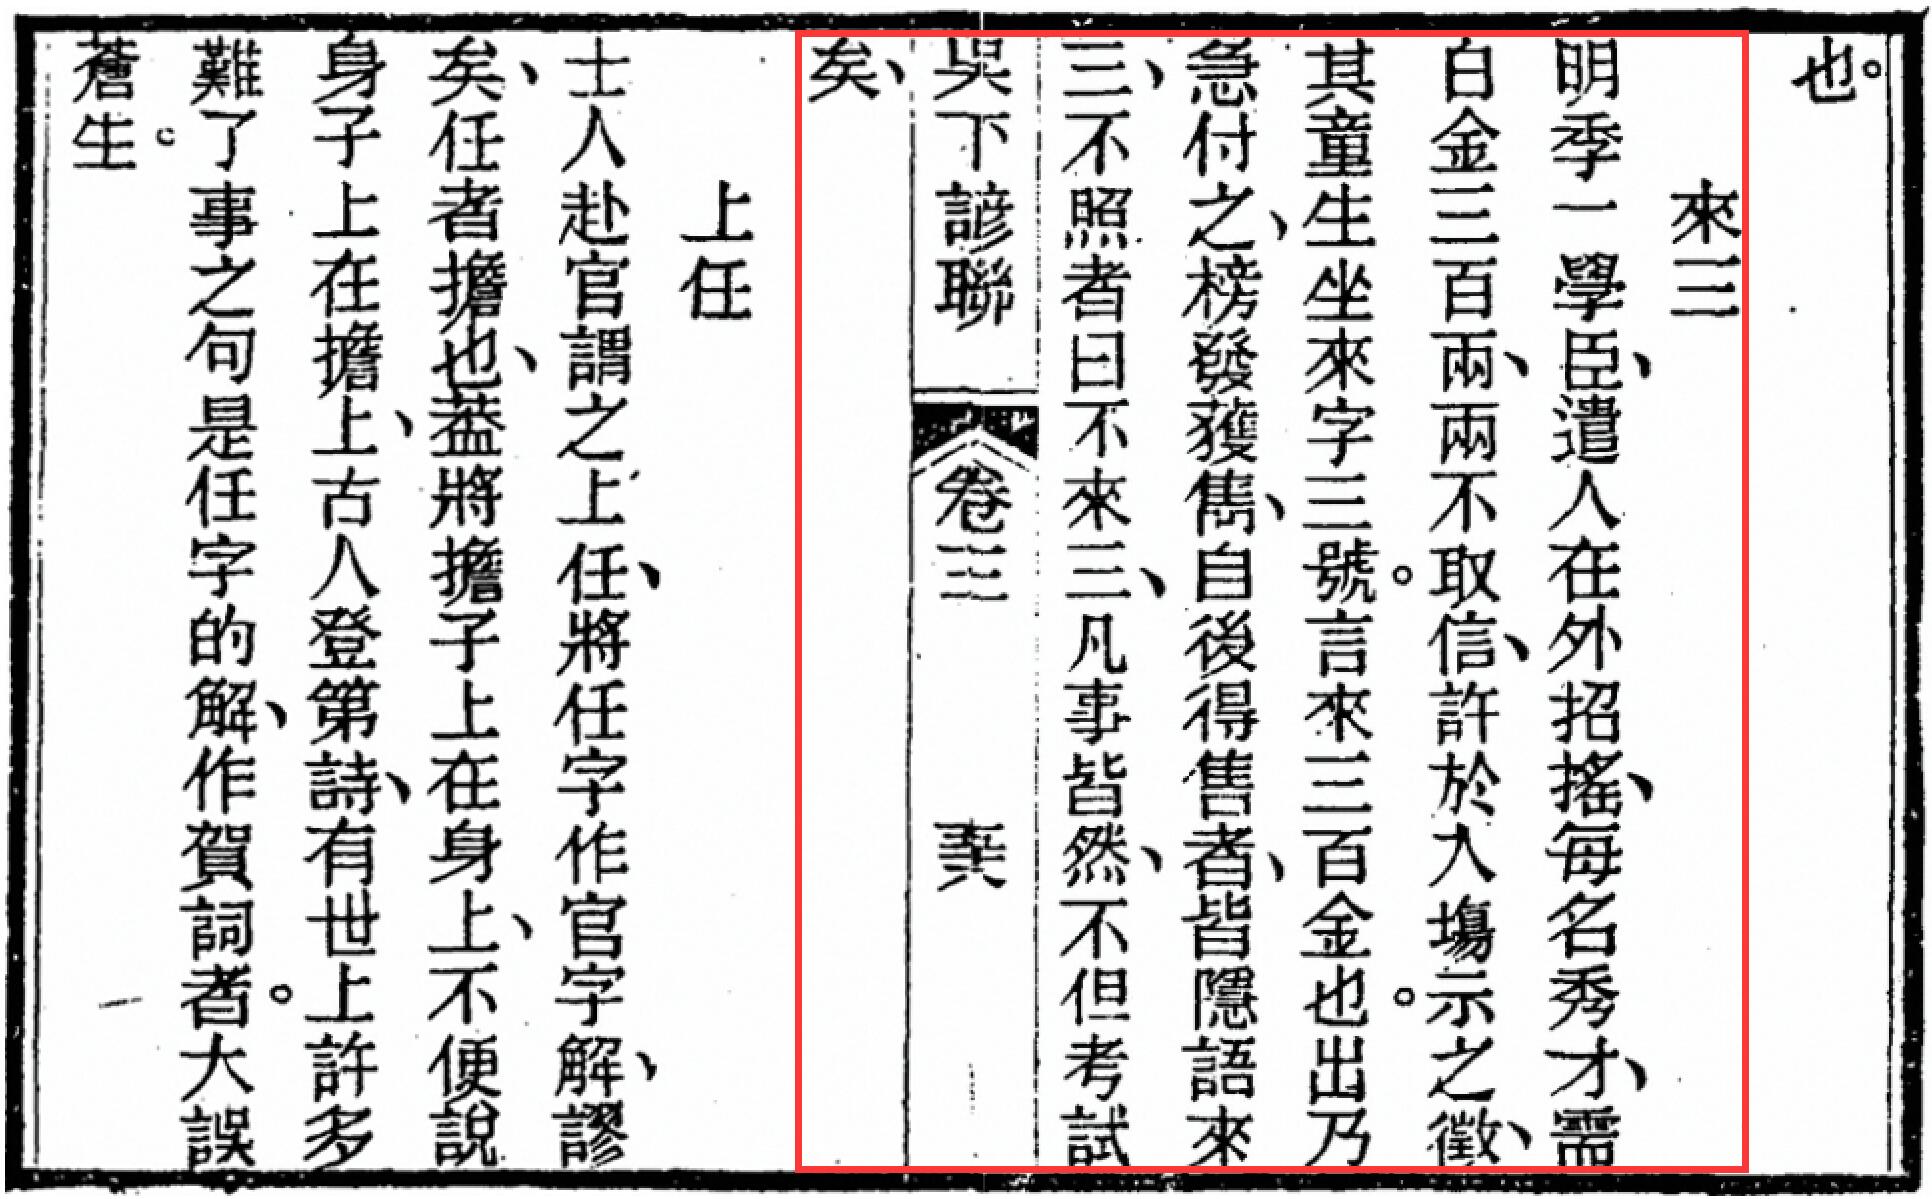 也。
來三
明季一學臣、遣人在外招搖、每名秀才、需
白金三百兩、兩不取信、許於入塲示之徵、
其童生坐來字三號。言來三百金也。出乃
急付之、榜發獲雋、自後得售者、皆隱語來
三、不照者曰不來三、凡事皆然、不但考試
吳下諺聯 卷三
矣、
上任
士人赴官謂之上任、將任字作官字解、謬
矣、任者擔也、葢將擔子上在身上、不便說
身子上在擔上、古人登第詩、有世上許多
難了事之句是任字的解、作賀詞者。大誤
蒼生。